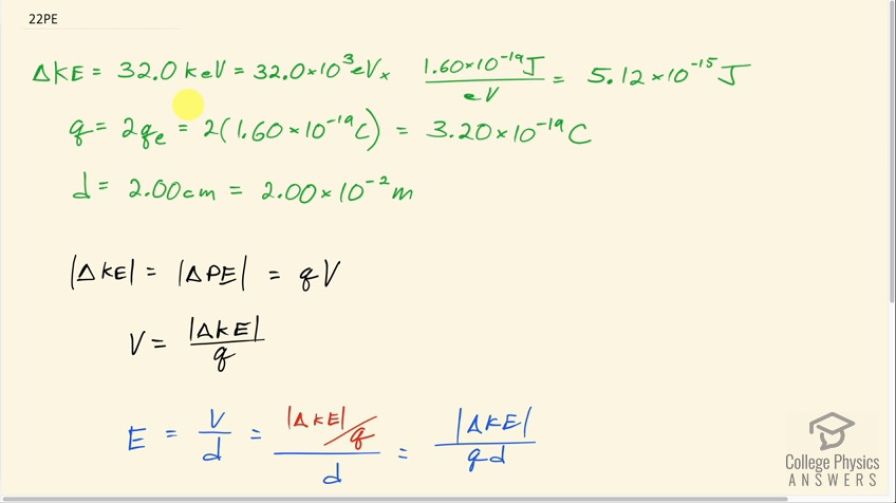 22PE
ΔKE = 32.0 keV = 32.0×10³eV × 1.60×10⁻¹⁹J/eV = 5.12×10⁻¹⁵ J
q = 2qₑ = 2(1.60×10⁻¹⁹C) = 3.20×10⁻¹⁹ C
d = 2.00cm = 2.00×10⁻² m
|ΔKE| = |ΔPE| = qV
V = |ΔKE|/q
E = V/d = |ΔKE|/q/d = |ΔKE|/qd
College Physics
ANSWERS